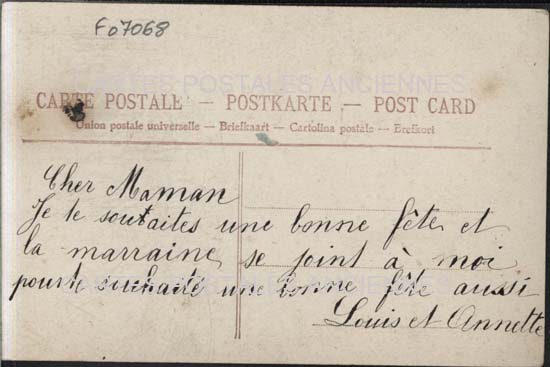 Fo7068
CARTES POSTALES ANCIENNES
CARTE POSTALE — POSTKARTE — POST CARD
Union postale universelle — Briefkaart — Cartolina postale — Brefkort
Cher Maman
Je te soutaites une bonne fête et
la marraine se joint à moi
pour te suhaité une bonne fête aussi
Louis et Annette